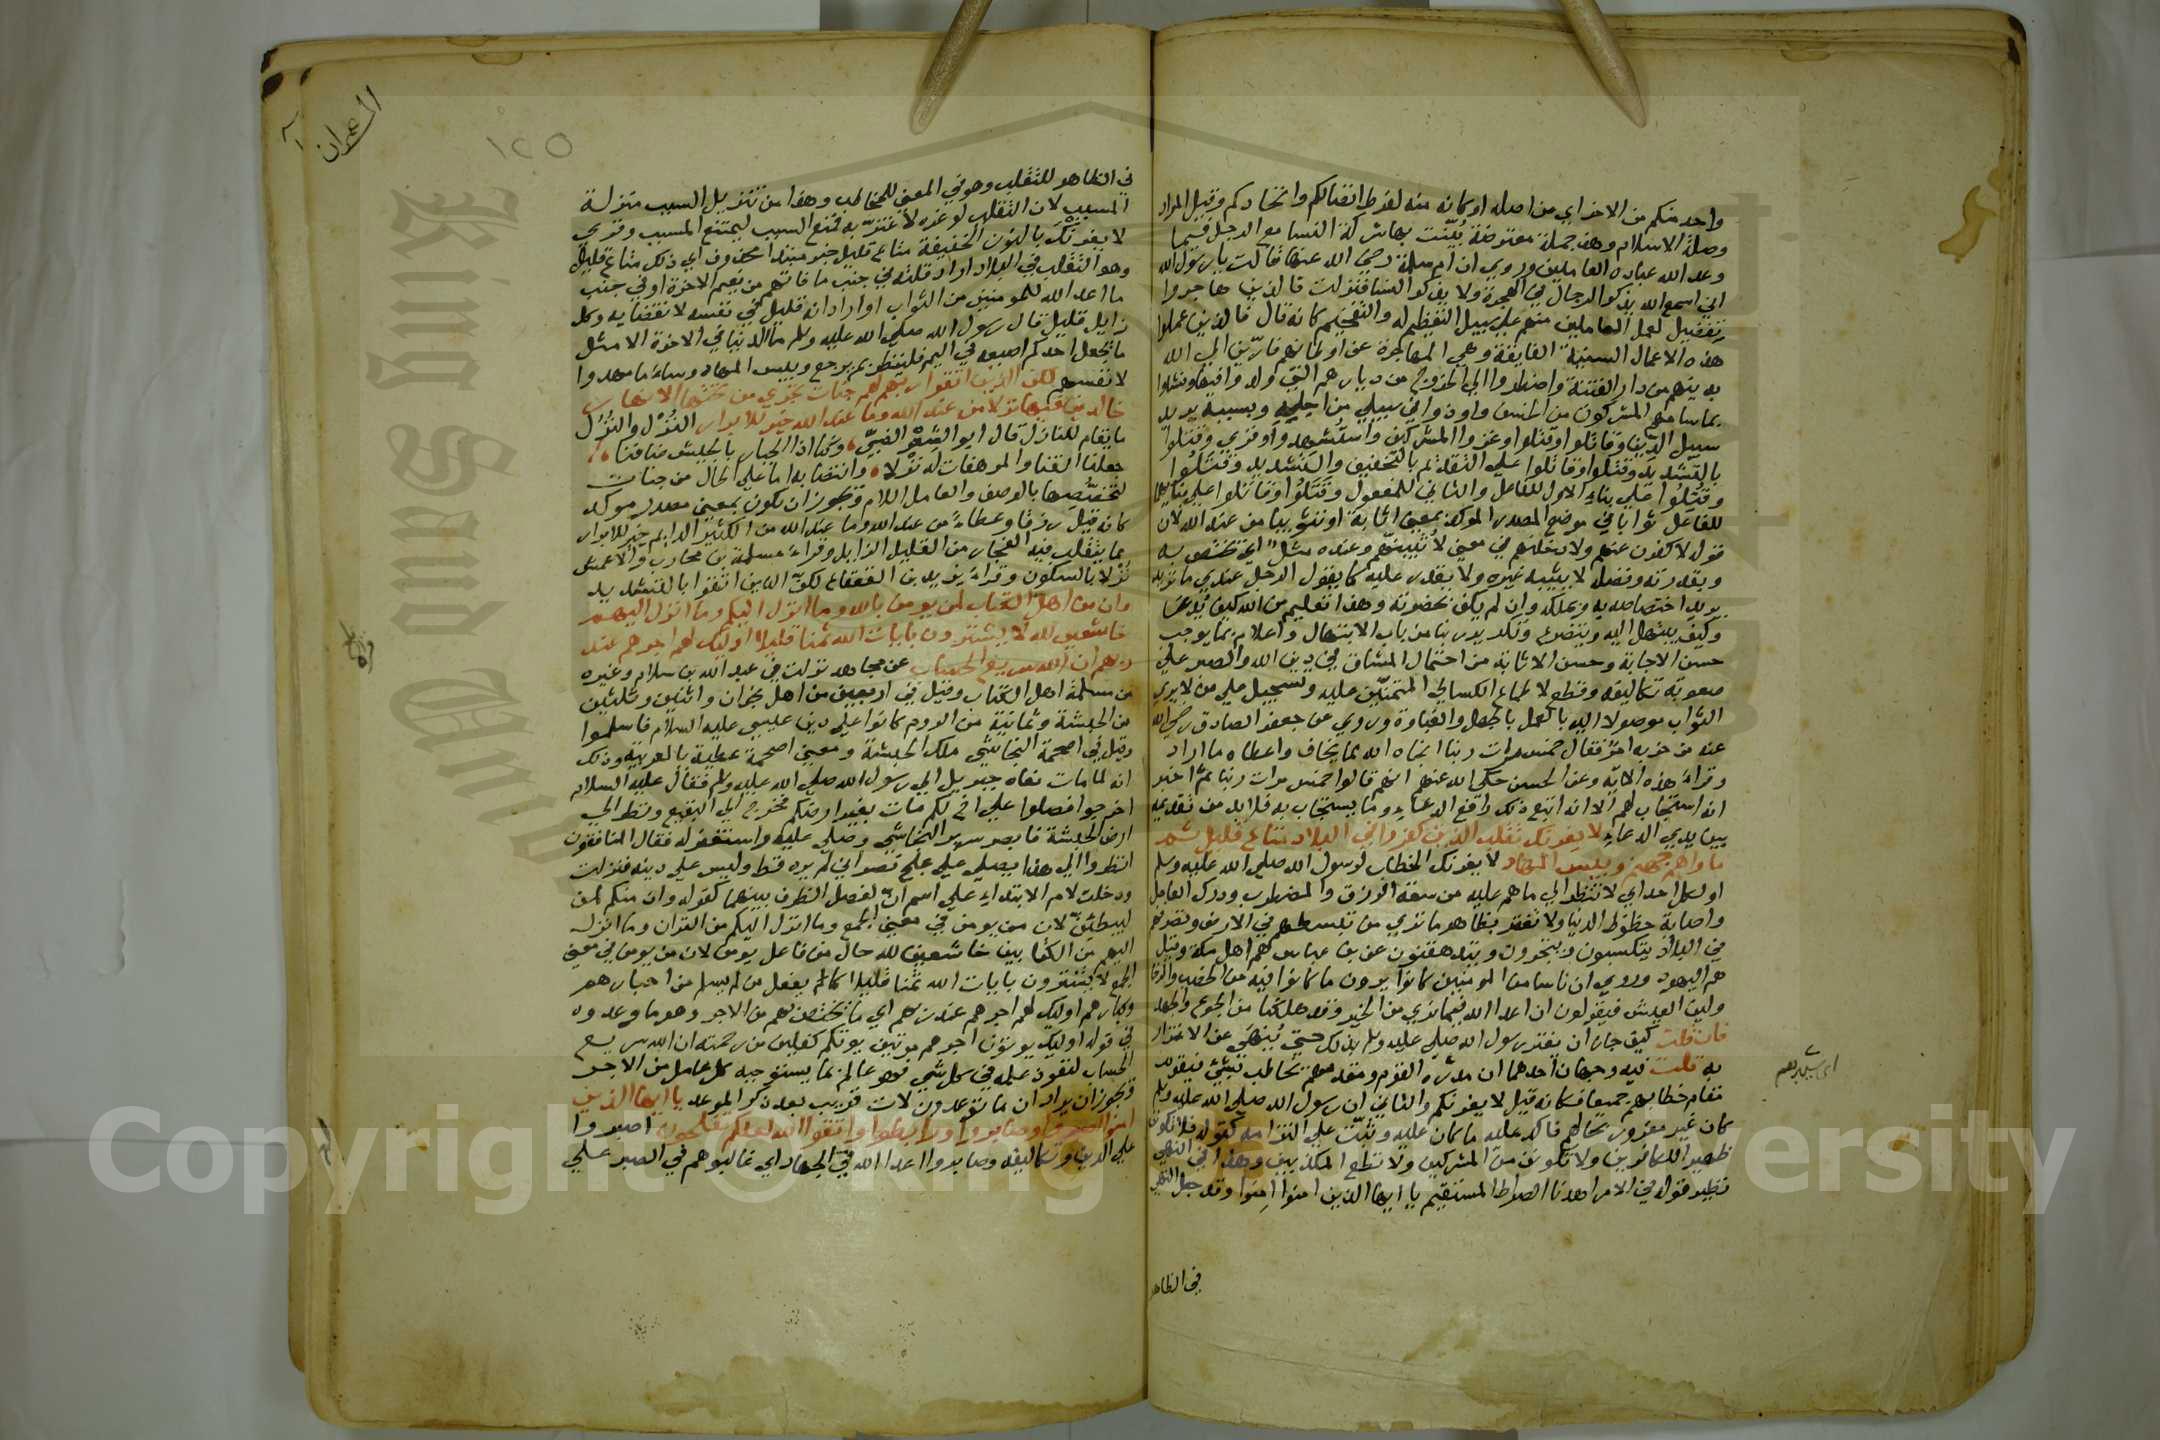 واحد منكم من الاخر اي من اصله او كانه منه لفرط اتصالكم واتحادكم وقيل المراد
وصلة الاسلام وهذه جملة معترضة بُيّنت بها شركة النسا مع الرجل فيما
وعد الله عباده العاملين وروي ان ام سلمة رضي الله عنها قالت يا رسول الله
اني اسمع الله يذكر الرجال في الهجرة ولا يذكر النسا فنزلت فالذين هاجروا
تفصيل لعمل العاملين منهم على سبيل التعظيم له والتفخيم كانه قال فالذين عملوا
هذه الاعمال السنية الفايقة وهي المهاجرة عن اوطانهم فارّين الي الله
بدينهم من دار الفتنة واضطروا الي الخروج من ديارهم التي ولدوا فيها ونشاوا
بما سامهم المشركون من الخسف واوذوا في سبيلي من اجله وبسببه يريد
سبيل الدين وقاتلوا وقتلوا وغزوا المشركين واستُشهدوا وقري وقتلوا
بالتشديد وقتلوا وقاتلوا علي التقديم بالتخفيف والتشديد وقتلوا
وقُتلوا علي بناء الاول للفاعل والثاني للمفعول وقتلوا وقاتلوا علي بنايهما
للفاعل ثوابا في موضع المصدر الموكد بمعني اثابة او تثويبا من عند الله لان
قوله لاكفرن عنهم ولادخلنهم في معني لاثيبنهم وعنده مثل اي يختص به
وبقدرته وفضله لا يثيبه غيره ولا يقدر عليه كما يقول الرجل عندي ما تريد
يريد اختصاصه به وتملكه وان لم يكن بحضرته وهذا تعليم من الله كيف يدعا
وكيف يبتهل اليه ويتضرع وتكرير ربنا من باب الابتهال واعلام بما يوجب
حسن الاجابة وحسن الاثابة من احتمال المشاق في دين الله والصبر علي
صعوبة تكاليفه وقطع لاطماع الكسالي المتمنّين عليه وتسجيل علي من لا يري
الثواب موصولا اليه بالعمل بالجهل والغباوة وروي عن جعفر الصادق رضي الله
عنه من حزبه امر فقال خمس مرات ربنا انجاه الله مما يخاف واعطاه ما اراد
وقراء هذه الاية وعن الحسن حكي الله عنهم انهم قالوا خمس مرات ربنا ثم اخبر
انه استجاب لهم الا انه اتبع ذلك رافع الدعاء وما يستجاب به فلا بد من تقديمه
بين يدي الدعاء لا يغرنك تقلب الذين كفروا في البلاد متاع قليل ثم
ماواهم جهنم وبيس المهاد لا يغرنك الخطاب لرسول الله صلي الله عليه وسلم
او لكل احد اي لا تنظر الي ما هم عليه من سعة الرزق والمضطرب ودرك العاجل
واصابة حظوظ الدنيا ولا تغتر بظاهر ما تري من تبسطهم في الارض وتصرفهم
في البلاد يتكسبون ويتجرون ويتدهقنون عن بن عباس هم اهل مكة وقيل
هم اليهود وروي ان ناسا من المومنين كانوا يرون ما كانوا فيه من الخصب والرخا
ولين العيش فيقولون ان اعدا الله فيما نري من الخير وقد هلكنا من الجوع والجهد
فان قلت كيف جاز ان يغتر رسول الله صلي عليه وسلم بذلك حتي يُنهي عن الاغترار
به قلت فيه وجهان احدهما ان مدره القوم ومقدمهم يخاطب بشيء فيقوم
مقام خطابهم جميعا فكانه قيل لا يغرنكم والثاني ان رسول الله صلي الله عليه وسلم
كان غير مغرور بحالهم فاكد عليه ما كان عليه وثبّت علي التزامه كقوله فلا تكونن
ظهيرا للكافرين ولا تكونن من المشركين ولا تطع المكذبين وهذا في النهي
نظير قوله في الامر اهدنا الصراط المستقيم يا ايها الذين امنوا امنوا وقد جعل النهي
في الظاهر
اي سيدهم
ال عمران
١٢٥
في الظاهر للتقلب وهو في المعني للمخاطب وهذا من تنزيل السبب منزلة
المسبب لان التقلب لو غره لاغترّ به فمنع السبب ليمتنع المسبب وقري
لا يغرنْك بالنون الخفيفة متاع قليل خبر مبتدا محذوف اي ذلك متاع قليل
وهو التقلب في البلاد اراد قلته في جنب ما فاتهم من نعيم الاخرة او في جنب
ما اعد الله للمومنين من الثواب او اراد انه قليل في نفسه لانقضايه وكل
زايل قليل قال رسول الله صلي الله عليه وسلم ما الدنيا في الاخرة الا مثل
ما يجعل احدكم اصبعه في اليم فلينظر بم يرجع وبيس المهاد وساء ما مهدوا
لانفسهم لكن الذين اتقوا ربهم لهم جنات تجري من تحتها الانهار
خالدين فيها نزلا من عند الله وما عند الله خير للابرار النُزْل والنُزُل
ما يقام للنازل قال ابو الشِعْر الضبيّ وكنا اذا الجبار بالجيش ضافنا
جعلنا القنا والمرهفات له نُزْلا وانتصابه اما علي الحال من جنات
لتخصّصها بالوصف والعامل اللام ويجوز ان يكون بمعني مصدر موكد
كانه قيل رزقا وعطاءً من عند الله وما عند الله من الكثير الدايم خير للابرار
مما يتقلب فيه الفجار من القليل الزايل وقراء مسلمة بن محارب والاعمش
نُزْلا بالسكون وقراء يزيد بن القعقاع لكنّ الذين اتقوا بالتشديد
وان من اهل الكتاب لمن يومن بالله وما انزل اليكم وما انزل اليهم
خاشعين لله لا يشترون بايات الله ثمنا قليلا اوليك لهم اجرهم عند
ربهم ان الله سريع الحساب عن مجاهد نزلت في عبد الله بن سلام وغيره
من مسلمة اهل الكتاب وقيل في اربعين من اهل نجران واثنين وثلثين
من الحبشة وثمانية من الروم كانوا علي دين عيسي عليه السلام فاسلموا
وقيل في اصحمة النجاشي ملك الحبشة ومعني اصحمة عطية بالعربية وذلك
انه لما مات نعاه جبريل الي رسول الله صلي الله عليه وسلم فقال عليه السلام
اخرجوا فصلوا علي اخ لكم مات بغير ارضكم فخرج الي البقيع ونظر الي
ارض الحبشة فابصر سرير النجاشي وصلي عليه واستغفر له فقال المنافقون
انظروا الي هذا يصلي علي علج نصراني لم يره قط وليس علي دينه فنزلت
ودخلت لام الابتداء علي اسم انّ لفصل الظرف بينهما كقوله وان منكم لمن
ليبطئنّ لان من يومن في معني الجمع وما انزل اليكم من القران وما انزل
اليهم من الكتابين خاشعين لله حال من فاعل يومن لان من يومن في معني
الجمع لا يشترون بايات الله ثمنا قليلا كما لم يفعل من لم يسلم من احبارهم
وكبارهم اوليك لهم اجرهم عند ربهم اي ما يختص بهم من الاجر وهو ما وعدوه
في قوله اوليك يوتون اجرهم مرتين يوتكم كفلين من رحمته ان الله سريع
الحساب لنفوذ علمه في كل شي فهو عالم بما يستوجبه كل عامل من الاجر
ويجوز ان يراد ان ما توعدون لات قريب بعد ذكر الموعد يا ايها الذين
امنوا اصبروا وصابروا ورابطوا واتقوا الله لعلكم تفلحون اصبروا
علي الدين وتكاليفه وصابروا اعدا الله في الجهاد اي غالبوهم في الصبر علي